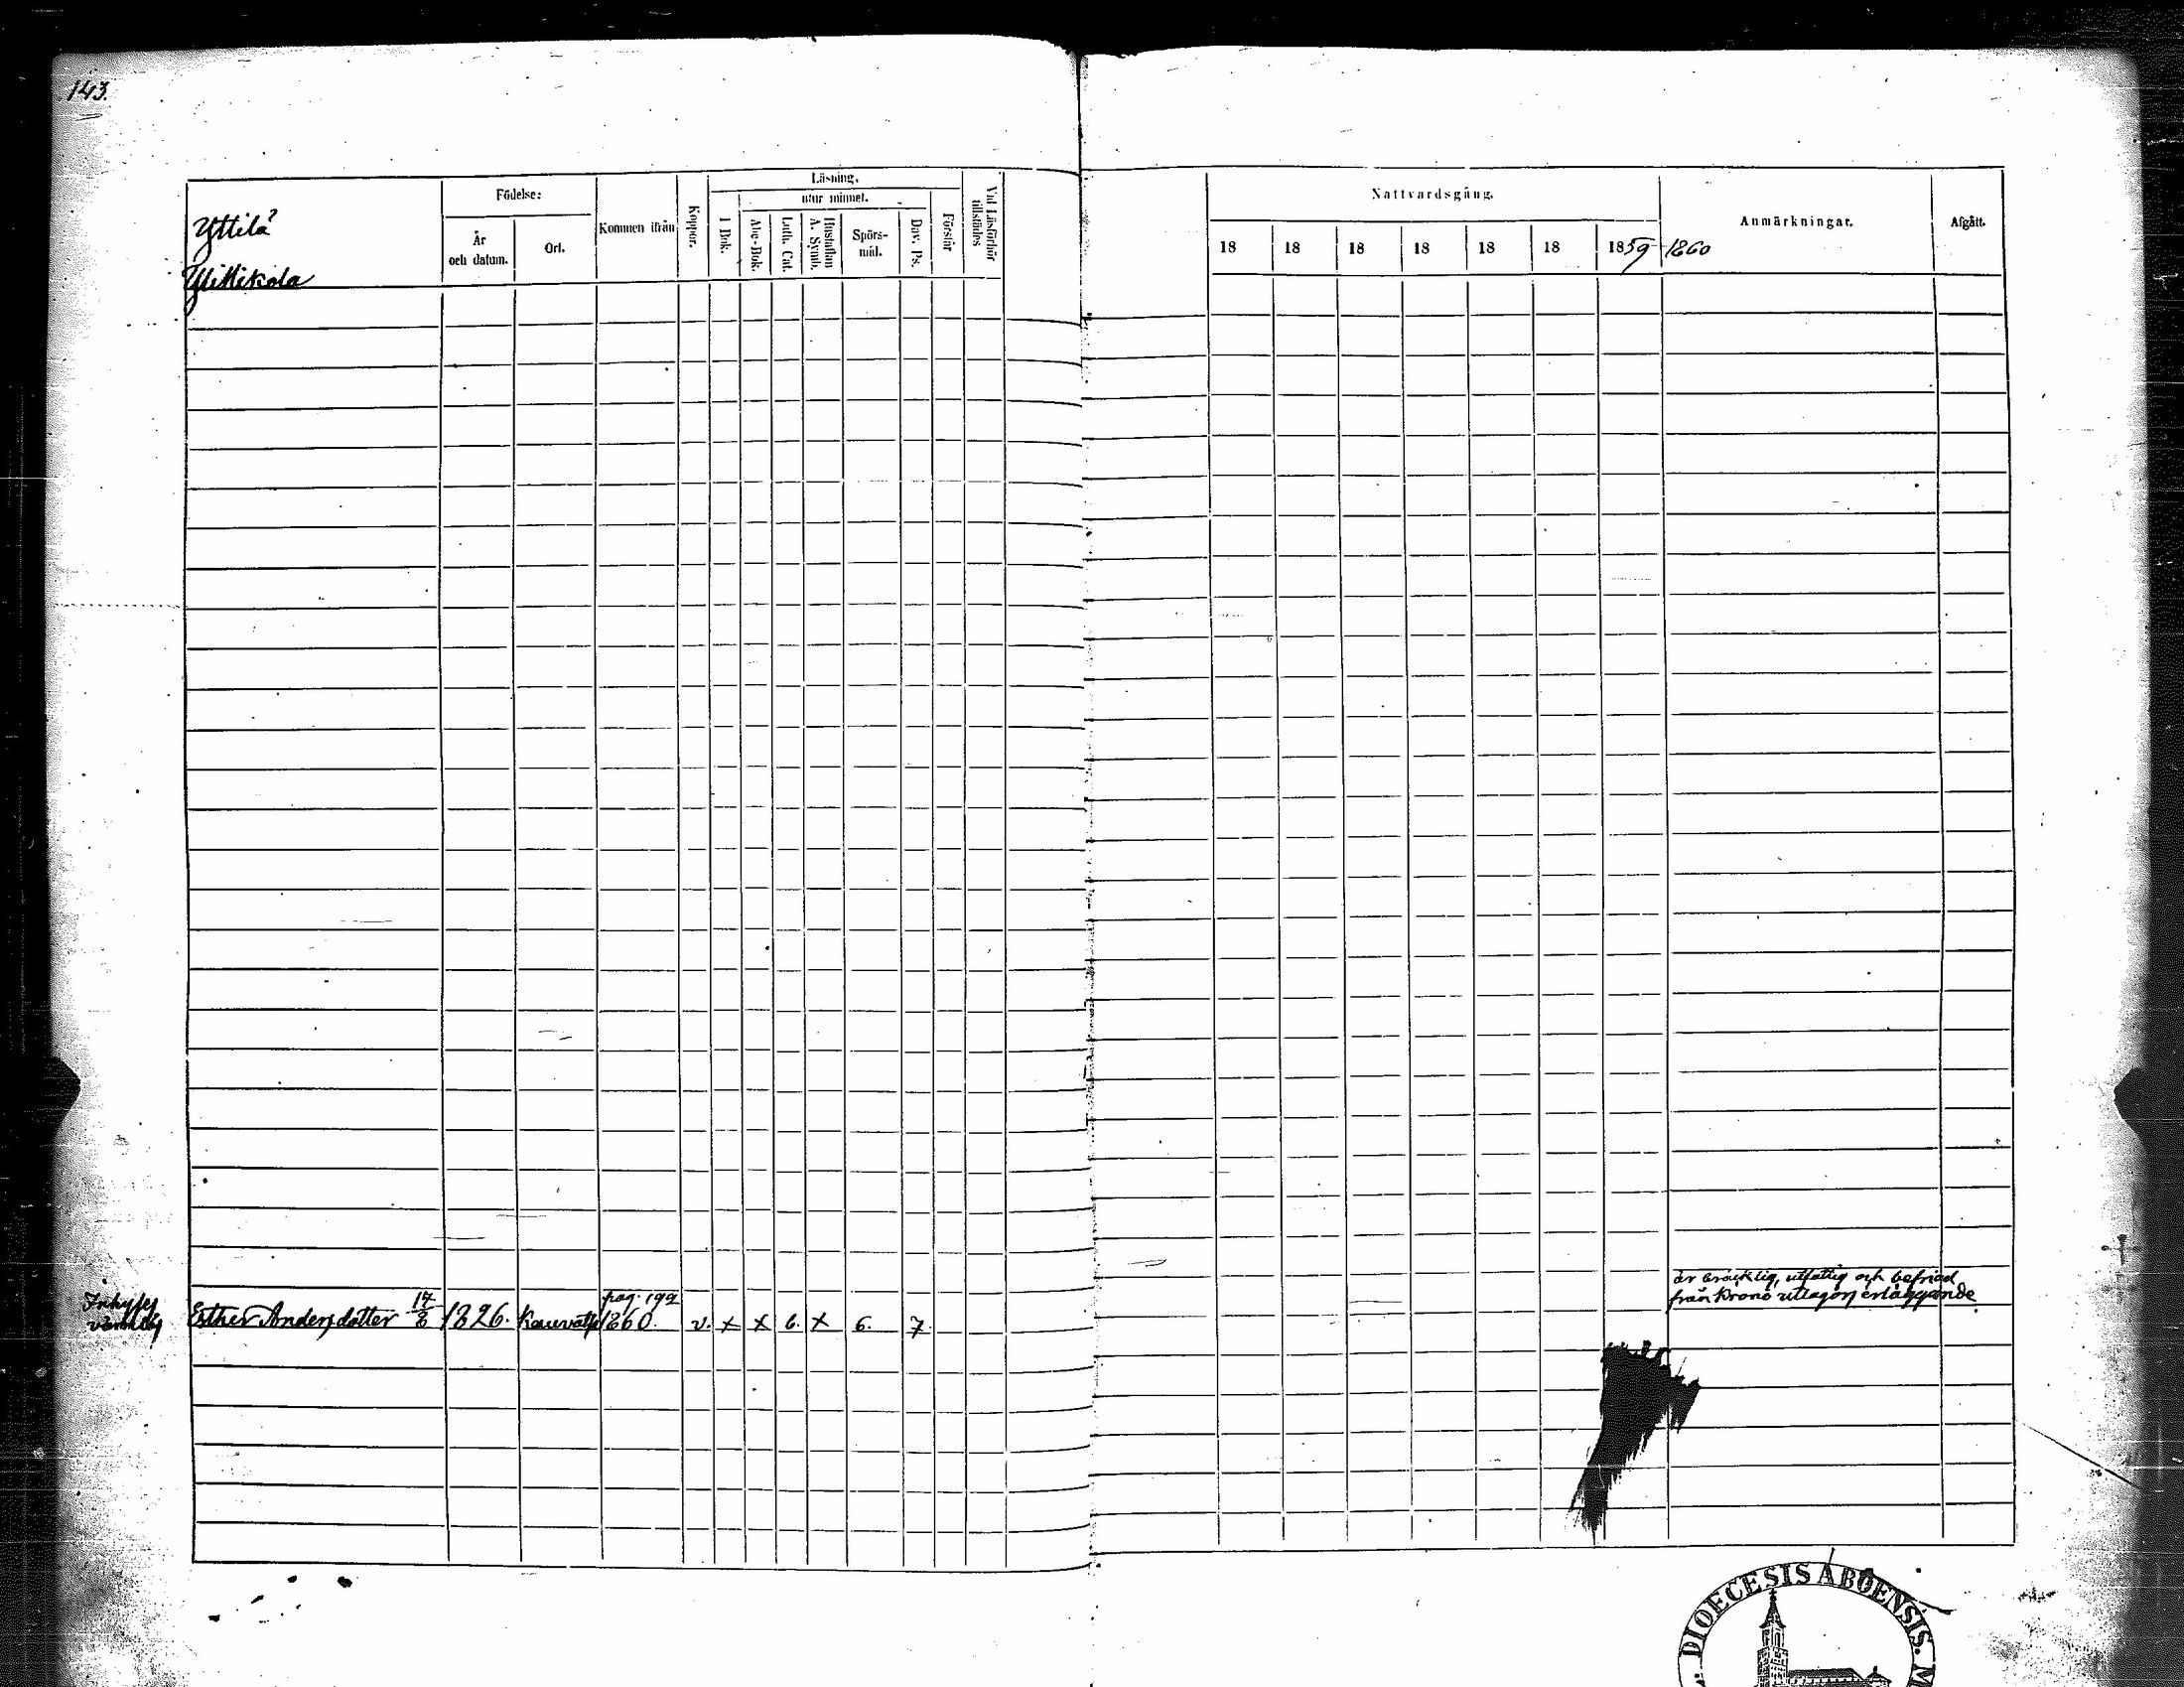 143.
Yttilä
Ylikikola
Födelse:
År och datum.
Ort.
Kommen ifrån
Koppor.
Läsning.
utur minnet.
I Bok.
Abc-Bok.
Luth. Cat.
Hustaflan A. Symb.
Spörs-mål.
Dav. Ps.
Förstår
Vid Läsförhör tillstädes
Nattvardsgång.
18 18 18 18 18 18 1859 1860
Anmärkningar.
Afgått.
Inhyses
Esther Andersdotter 17/8 1826. Kauvatsa pag. 199 1860. v. x x 6. x 6. 7.
är bräcklig, utfattig och befriad
från Krono utlagors erläggande
DIOECESIS ABOENSIS.